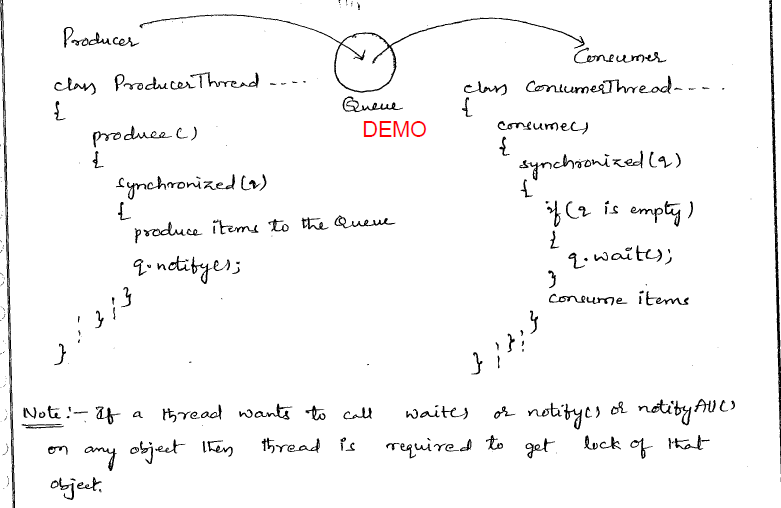 Producer
Consumer
Queue
DEMO
class ProducerThread ----
{
produce()
{
synchronized(q)
{
produce items to the Queue
q.notify();
}
}
}
class ConsumerThread----
{
consume()
{
synchronized(q)
{
if(q is empty)
{
q.wait();
}
consume items
}
}
}
Note:- If a thread wants to call wait() or notify() or notifyAll()
on any object then thread is required to get lock of that
object.